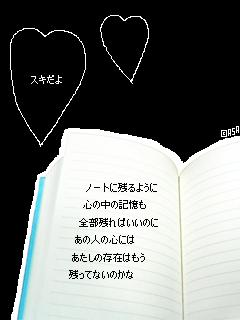 スキだよ
©ASA
ノートに残るように
心の中の記憶も
全部残ればいいのに
あの人の心には
あたしの存在はもう
残ってないのかな